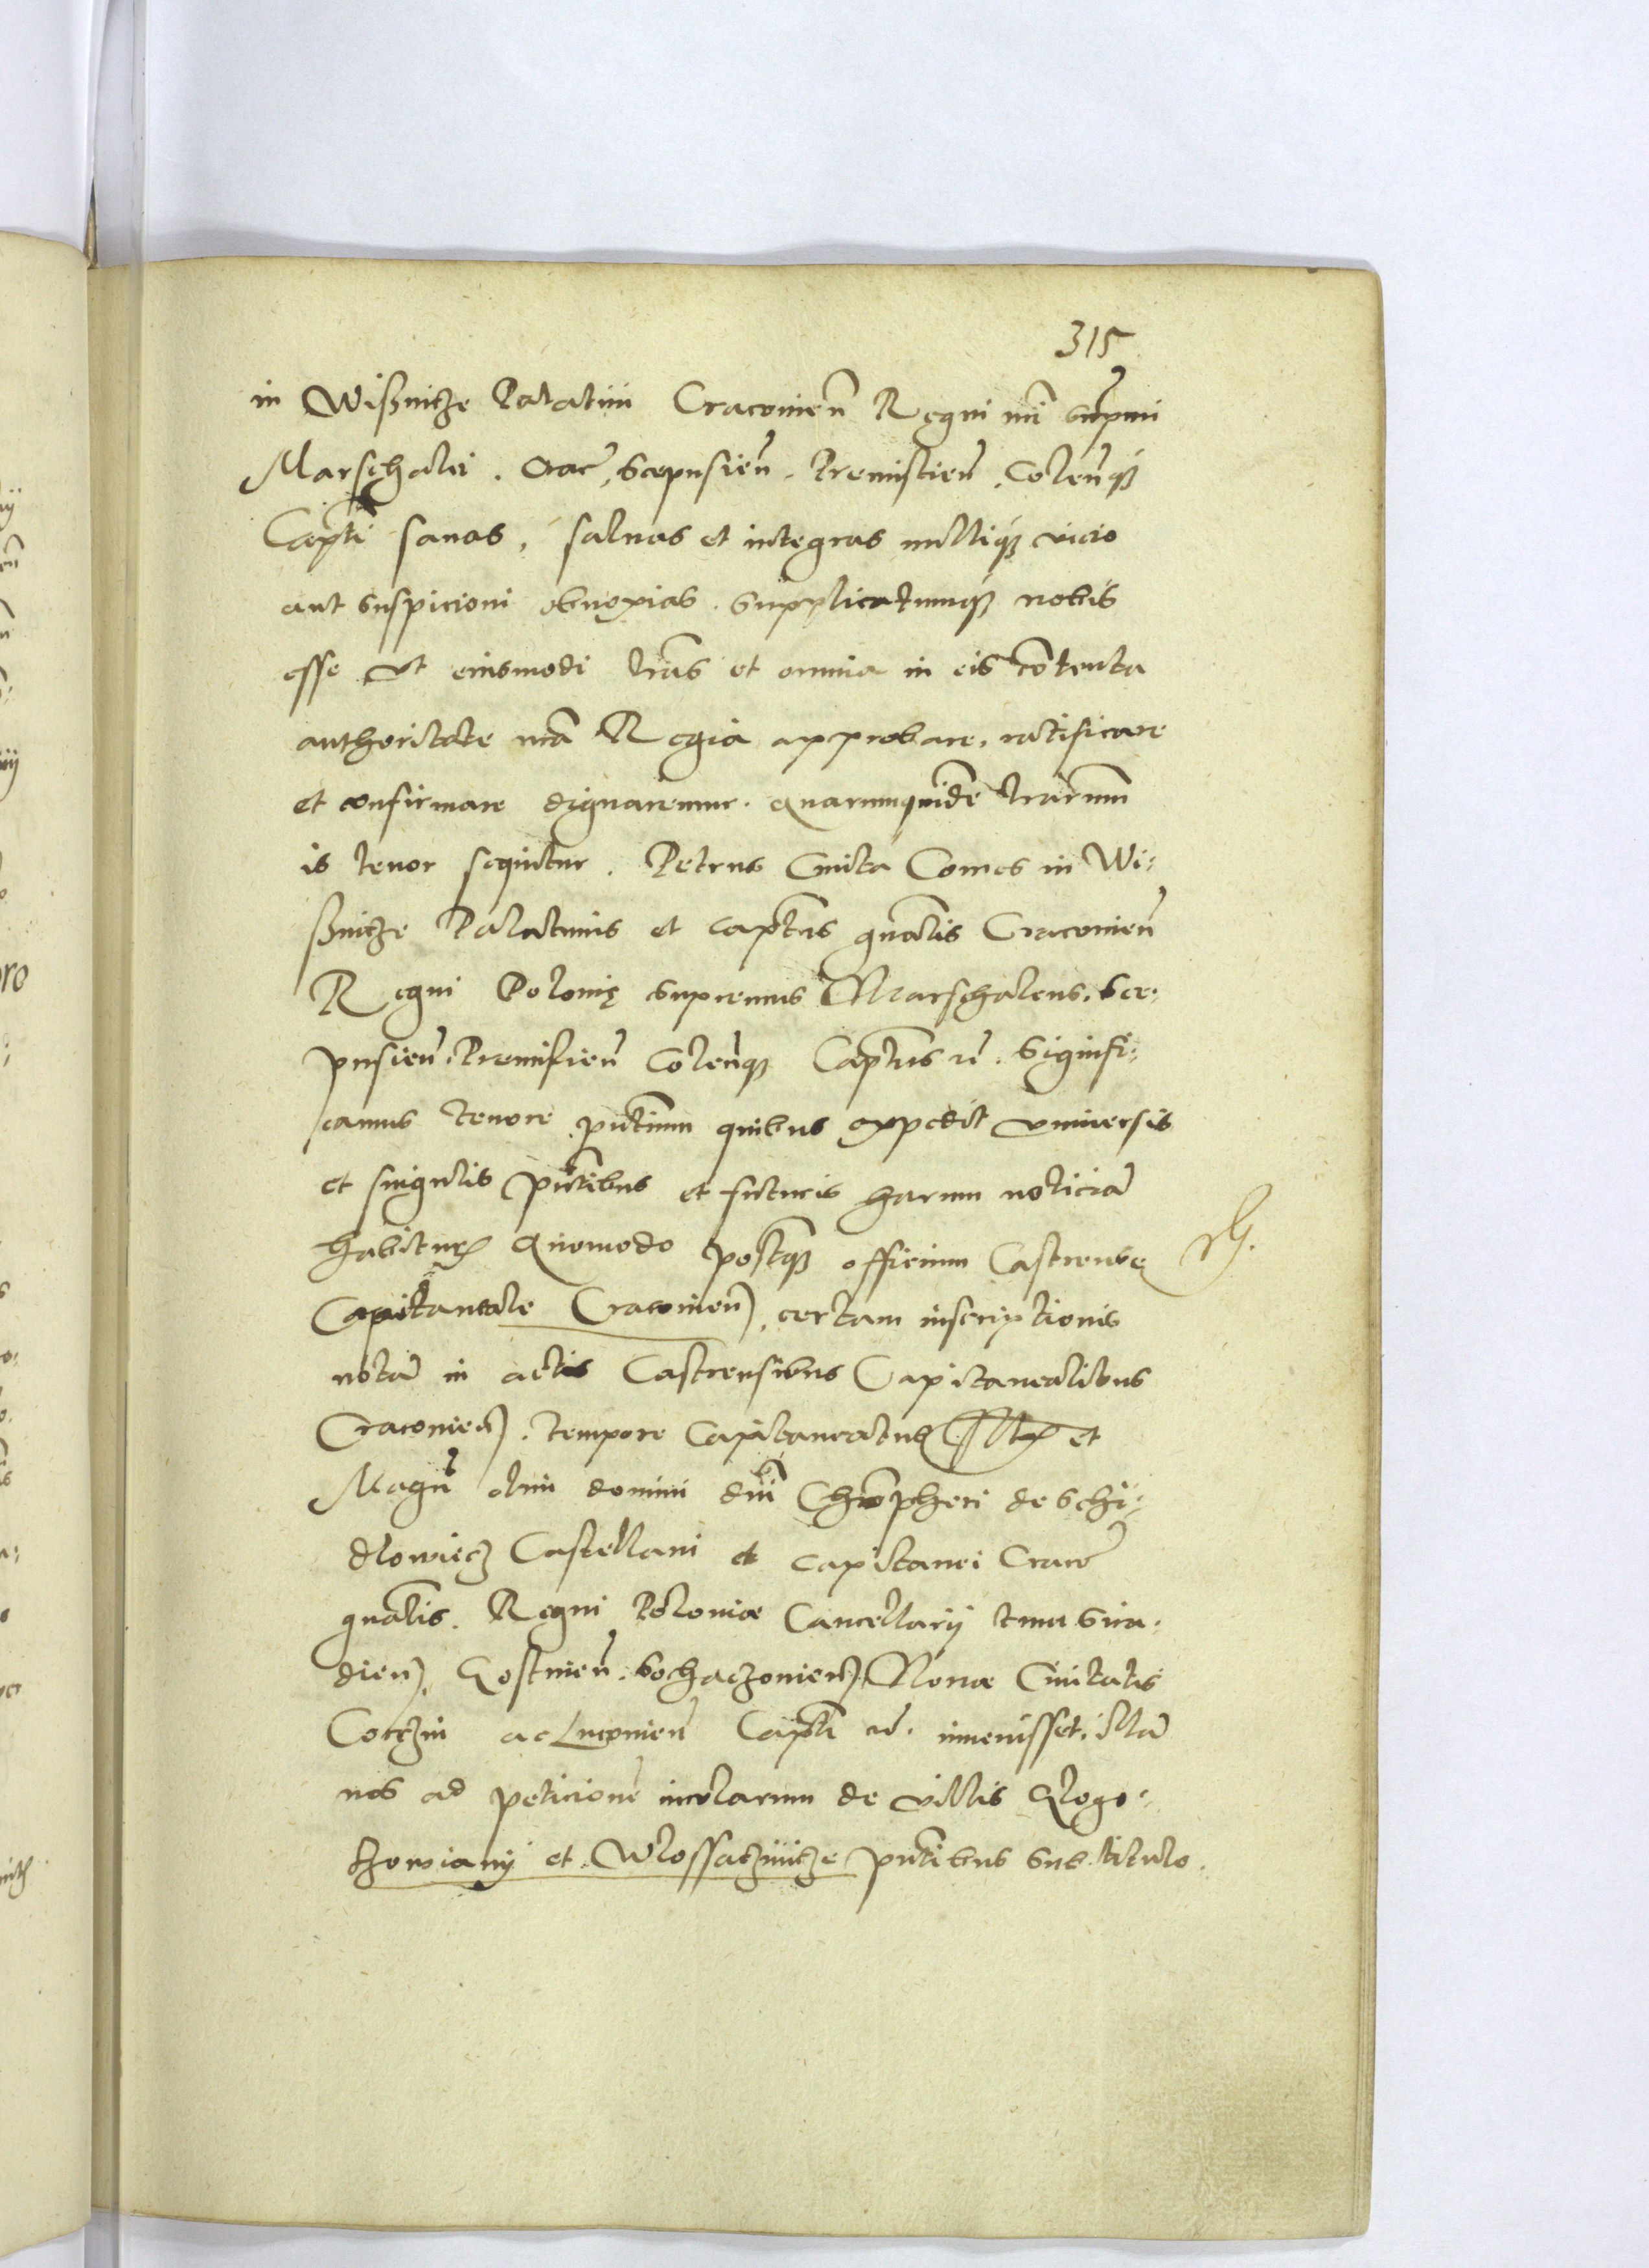 315
in Wißnicze Palatini Cracovień Regni nri suppmi
Marschalci. Crac, Scepusień. Premislień, Coleńq3
Capti sanas, salvas et integras nulliq3 vicio
aut suspicioni obnoxias. supplicatumq3 nobis
esse ut eiusmodi lras et omnia in eis cōtenta
authoritate nra Regia approbare, ratificare
et confirmare dignaremur. Quarumquidē lrarum
is tenor sequitur. Petrus Cmita Comes in Wi:
ßnicze Palatinus et captus gnalis Cracovień
Regni Polonię supremus Marschalcus. Sce:
pusień. Premislień Coleńq3 Captus rc. Signifi:
camus tenore pntium quibus expedit universis
et singulis pntibus et futuris harum noticiā
habituris Quomodo postq3 officium Castrense
Capitaneale Cracovień, certam inscriptionis
notā in actis Castrensibus Capitanealibus
Cracovień. tempore Capitaneatus Illris et
Magci olim domini dni Christopheri de Schi:
dlowiecz Castellani et capitanei Crac
gnalis. Regni Poloniæ Cancellarij tum Sira:
dień, Gostinień. Sochaczovień, Novæ Civitatis
Corczin ac Lucovień Capti rc. invenisset. illā
nos ad peticionē incolarum de villis Rogo:
zowiany et Wlossacznicze pntibus sub titulo.